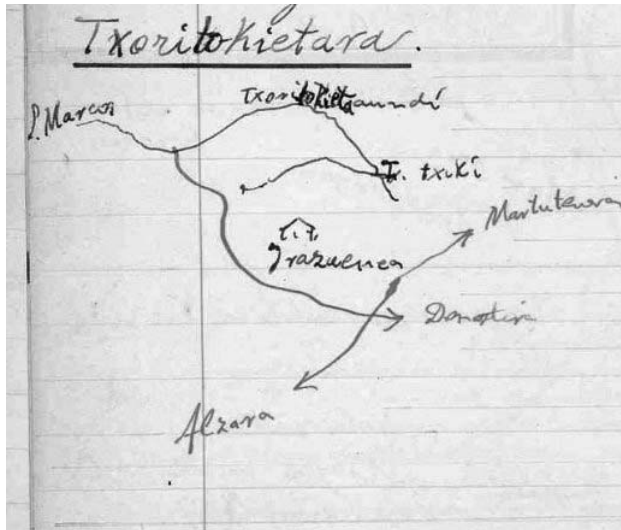 Txoritokietara.
S. Marcos
Txoritokieta aundi
Tx. txiki
Martutenera
Donostira
Alzara